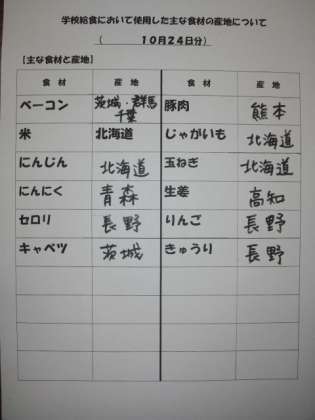 学校給食において使用した主な食材の産地について
(　　　　１０月２４日分)
[主な食材と産地]
食　材　産　地　食　材　産　地
ベーコン　茨城・群馬 千葉　豚肉　熊本
米　北海道　じゃがいも　北海道
にんじん　北海道　玉ねぎ　北海道
にんにく　青森　生姜　高知
セロリ　長野　りんご　長野
キャベツ　茨城　きゅうり　長野